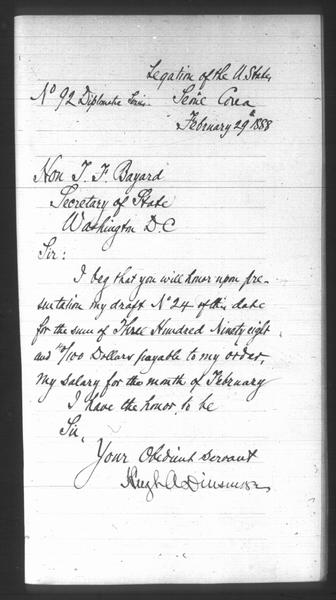 Legation of the U. States
No 92 Diplomatic Series. Seoul Corea
February 29th 1888
Hon T. F. Bayard
Secretary of State
Washington D.C
Sir:
I beg that you will honor upon pre-
sentation my draft No 24 of this date
for the sum of Three Hundred Ninety eight
and /100 Dollars payable to my order,
my salary for the month of February
I have the honor to be
Sir,
Your Obedient Servant
Hugh A Dinsmore